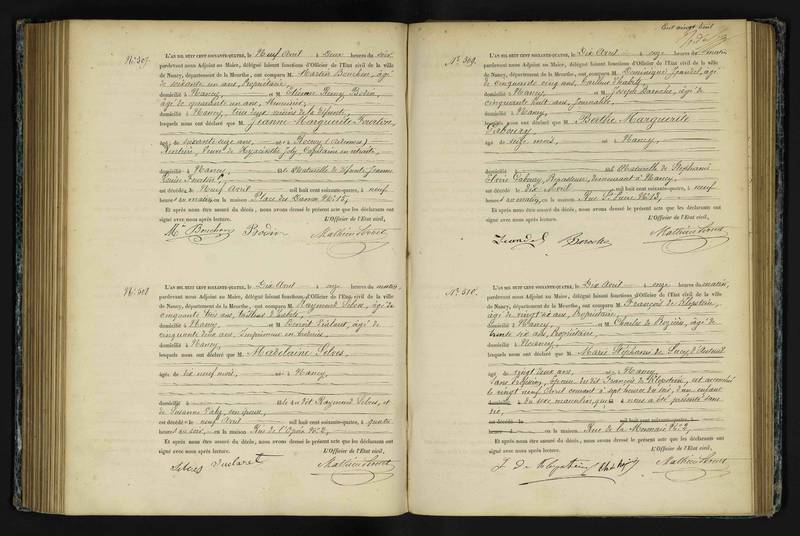 N°. 307.
L'AN MIL HUIT CENT SOIXANTE-QUATRE, le Neuf Avril à deux heures du soir,
pardevant nous Adjoint au Maire, délégué faisant fonctions d'Officier de l'Etat civil de la ville
de Nancy, département de la Meurthe, ont comparu M. Martin Bouchon, âgé
de soixante un ans, Propriétaire,
domicilié à Nancy, et M. Etienne Remy Bodin,
âgé de quarante un ans, Menuisier,
domicilié à Nancy, tous deux voisins de la défunte,
lesquels nous ont déclaré que M. Jeanne Marguerite Fourton,
âgé de soixante onze ans, né à Rocroy (Ardennes)
Rentière, Veuve de Hyacinthe Joly, Capitaine en retraite,
domicilié à Nancy, fille Naturelle de défunte Jeanne
Louise Fourton,
est décédé, le Neuf Avril mil huit cent soixante-quatre, à neuf
heures du matin, en la maison Place des Dames N° 15,
Et après nous être assuré du décès, nous avons dressé le présent acte que les déclarants ont
signé avec nous après lecture.
L'Officier de l'Etat civil,
Bouchon Bodin
N°. 308
L'AN MIL HUIT CENT SOIXANTE-QUATRE, le Dix Avril à onze heures du matin,
pardevant nous Adjoint au Maire, délégué faisant fonctions d'Officier de l'Etat civil de la ville
de Nancy, département de la Meurthe, ont comparu M. Raymond Selves, âgé de
cinquante trois ans, Tailleur d'habits,
domicilié à Nancy, et M. Benoit
cinquante dix ans, Imprimeur en
domicilié à Nancy,
lesquels nous ont déclaré que M. Madelaine Selves,
âgé de dix neuf mois, né à Nancy,
domicilié à fille du dit Raymond Selves, et
de Susanne son épouse,
est décédé le neuf Avril mil huit cent soixante-quatre, à quatre
heures du soir, en la maison Rue de N° 2,
Et après nous être assuré du décès, nous avons dressé le présent acte que les déclarants ont
signé avec nous après lecture.
L'Officier de l'Etat civil,
Selves
Cent vingt huit
N°. 309.
L'AN MIL HUIT CENT SOIXANTE-QUATRE, le Dix Avril à onze heures du matin
pardevant nous Adjoint au Maire, délégué faisant fonctions d'Officier de l'Etat civil de la ville
de Nancy, département de la Meurthe, ont comparu M. Dominique Jeandel, âgé
de cinquante cinq ans, Tailleur d'habits,
domicilié à Nancy, et M. Joseph âgé de
cinquante huit ans, Journalier,
domicilié à Nancy,
lesquels nous ont déclaré que M. Berthe Marguerite
âgé de onze mois, né à Nancy,
domicilié à fille Naturelle de Stéphanie
Repasseuse, demeurant à Nancy,
est décédé le dix Avril mil huit cent soixante-quatre, à neuf
heures du matin, en la maison Rue N° 13,
Et après nous être assuré du décès, nous avons dressé le présent acte que les déclarants ont
signé avec nous après lecture.
L'Officier de l'Etat civil,
Jeandel
N°. 310.
L'AN MIL HUIT CENT SOIXANTE-QUATRE, le Dix Avril à onze heures du matin,
pardevant nous Adjoint au Maire, délégué faisant fonctions d'Officier de l'Etat civil de la ville
de Nancy, département de la Meurthe, ont comparu M. François de Klopstein,
âgé de vingt six ans, Propriétaire,
domicilié à Nancy, et M. Charles de Rozières, âgé de
trente six ans, Propriétaire,
domicilié à Nancy,
lesquels nous ont déclaré que M. Marie Stéphanie de
âgé de vingt deux ans, née à Nancy,
sans Profession, épouse du dit François de Klopstein, est accouchée
le vingt neuf Avril courant à sept heures du soir, d'un enfant
du sexe masculin, qui nous a été présenté sans
vie,
est décédé le mil huit cent soixante-quatre, à
heures en la maison Rue de la Monnaie N° 2,
Et après nous être assuré du décès, nous avons dressé le présent acte que les déclarants ont
signé avec nous après lecture.
L'Officier de l'Etat civil,
F. de Klopstein